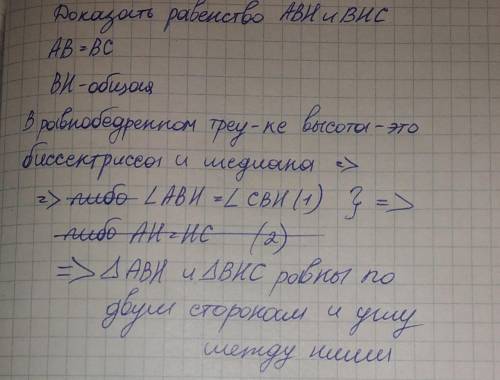 Доказать равенство ABH и BHC
AB = BC
BH - общая
В равнобедренном треу-ке высота - это
биссектрисса и медиана =>
=> либо ∠ABH = ∠CBH (1) } =>
либо AH = HC (2)
=> △ABH и △BHC ровны по
двум сторонам и углу
между ними